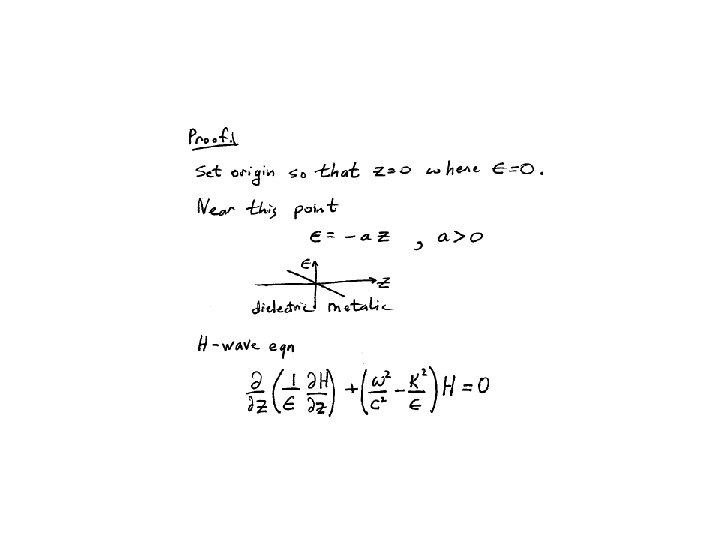 Proof:
Set origin so that z=0 where ε=0.
Near this point
ε = -az , a>0
ε
z
dielectric metalic
H-wave eqn
∂/∂z (1/ε ∂H/∂z) + (ω²/c² - K²/ε) H = 0